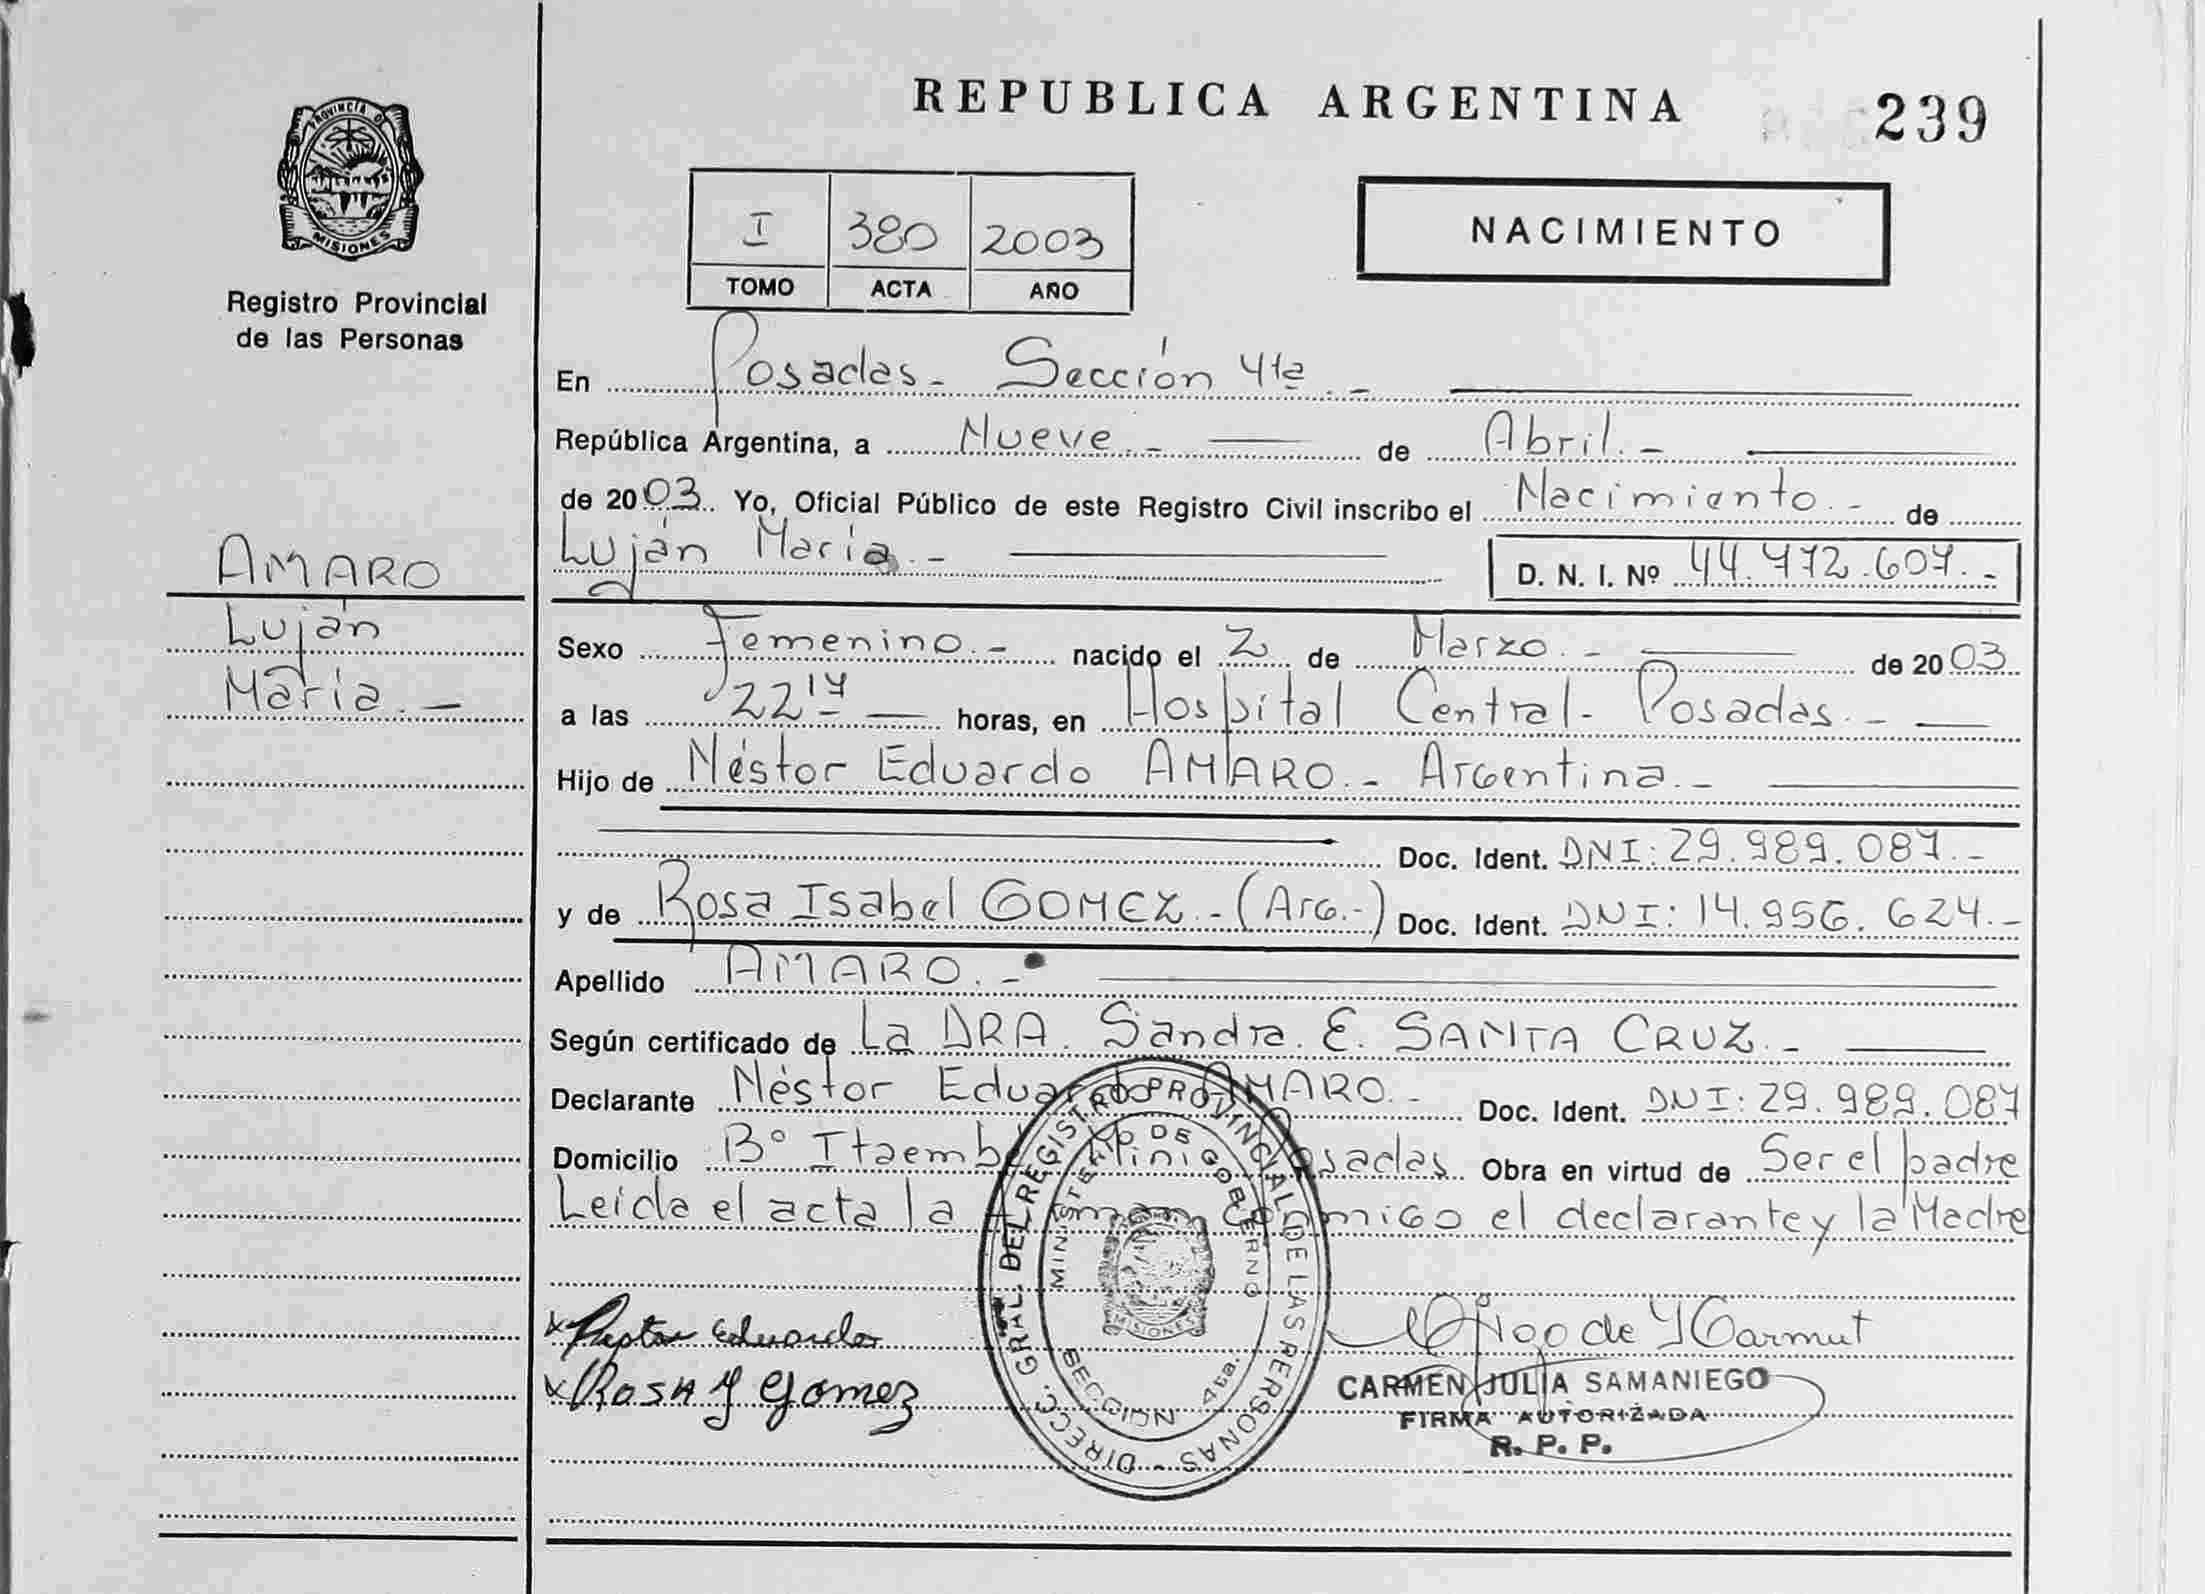 REPUBLICA ARGENTINA
239
PROVINCIA DE
MISIONES
Registro Provincial
de las Personas
I 380 2003
TOMO ACTA AÑO
NACIMIENTO
En Posadas - Sección 4ta. -
República Argentina, a Nueve. - de Abril. -
de 2003. Yo, Oficial Público de este Registro Civil inscribo el Nacimiento. - de
Luján María. - D. N. I. Nº 44.472.607. -
AMARO
Luján
María. -
Sexo Femenino. - nacido el 2 de Marzo. - de 2003
a las 22 17 - horas, en Hospital Central - Posadas. -
Hijo de Néstor Eduardo AMARO. - Argentina. -
Doc. Ident. DNI: 29.989.087. -
y de Rosa Isabel GOMEZ. - (Arg. -) Doc. Ident. DNI: 14.956.624. -
Apellido AMARO. -
Según certificado de La DRA. Sandra. E. SANTA CRUZ. -
Declarante Néstor Eduardo AMARO. - Doc. Ident. DNI: 29.989.087
Domicilio Bº Itaembé Mini Posadas Obra en virtud de Ser el padre
Leída el acta la firman conmigo el declarante y la Madre
DIRECC. GRAL. DEL REGISTRO PROVINCIAL DE LAS PERSONAS -
MINISTERIO DE GOBIERNO
MISIONES
SECCION 4ta.
x Eduardo
x Rosa Y Gomez
CARMEN JULIA SAMANIEGO
FIRMA AUTORIZADA
R. P. P.